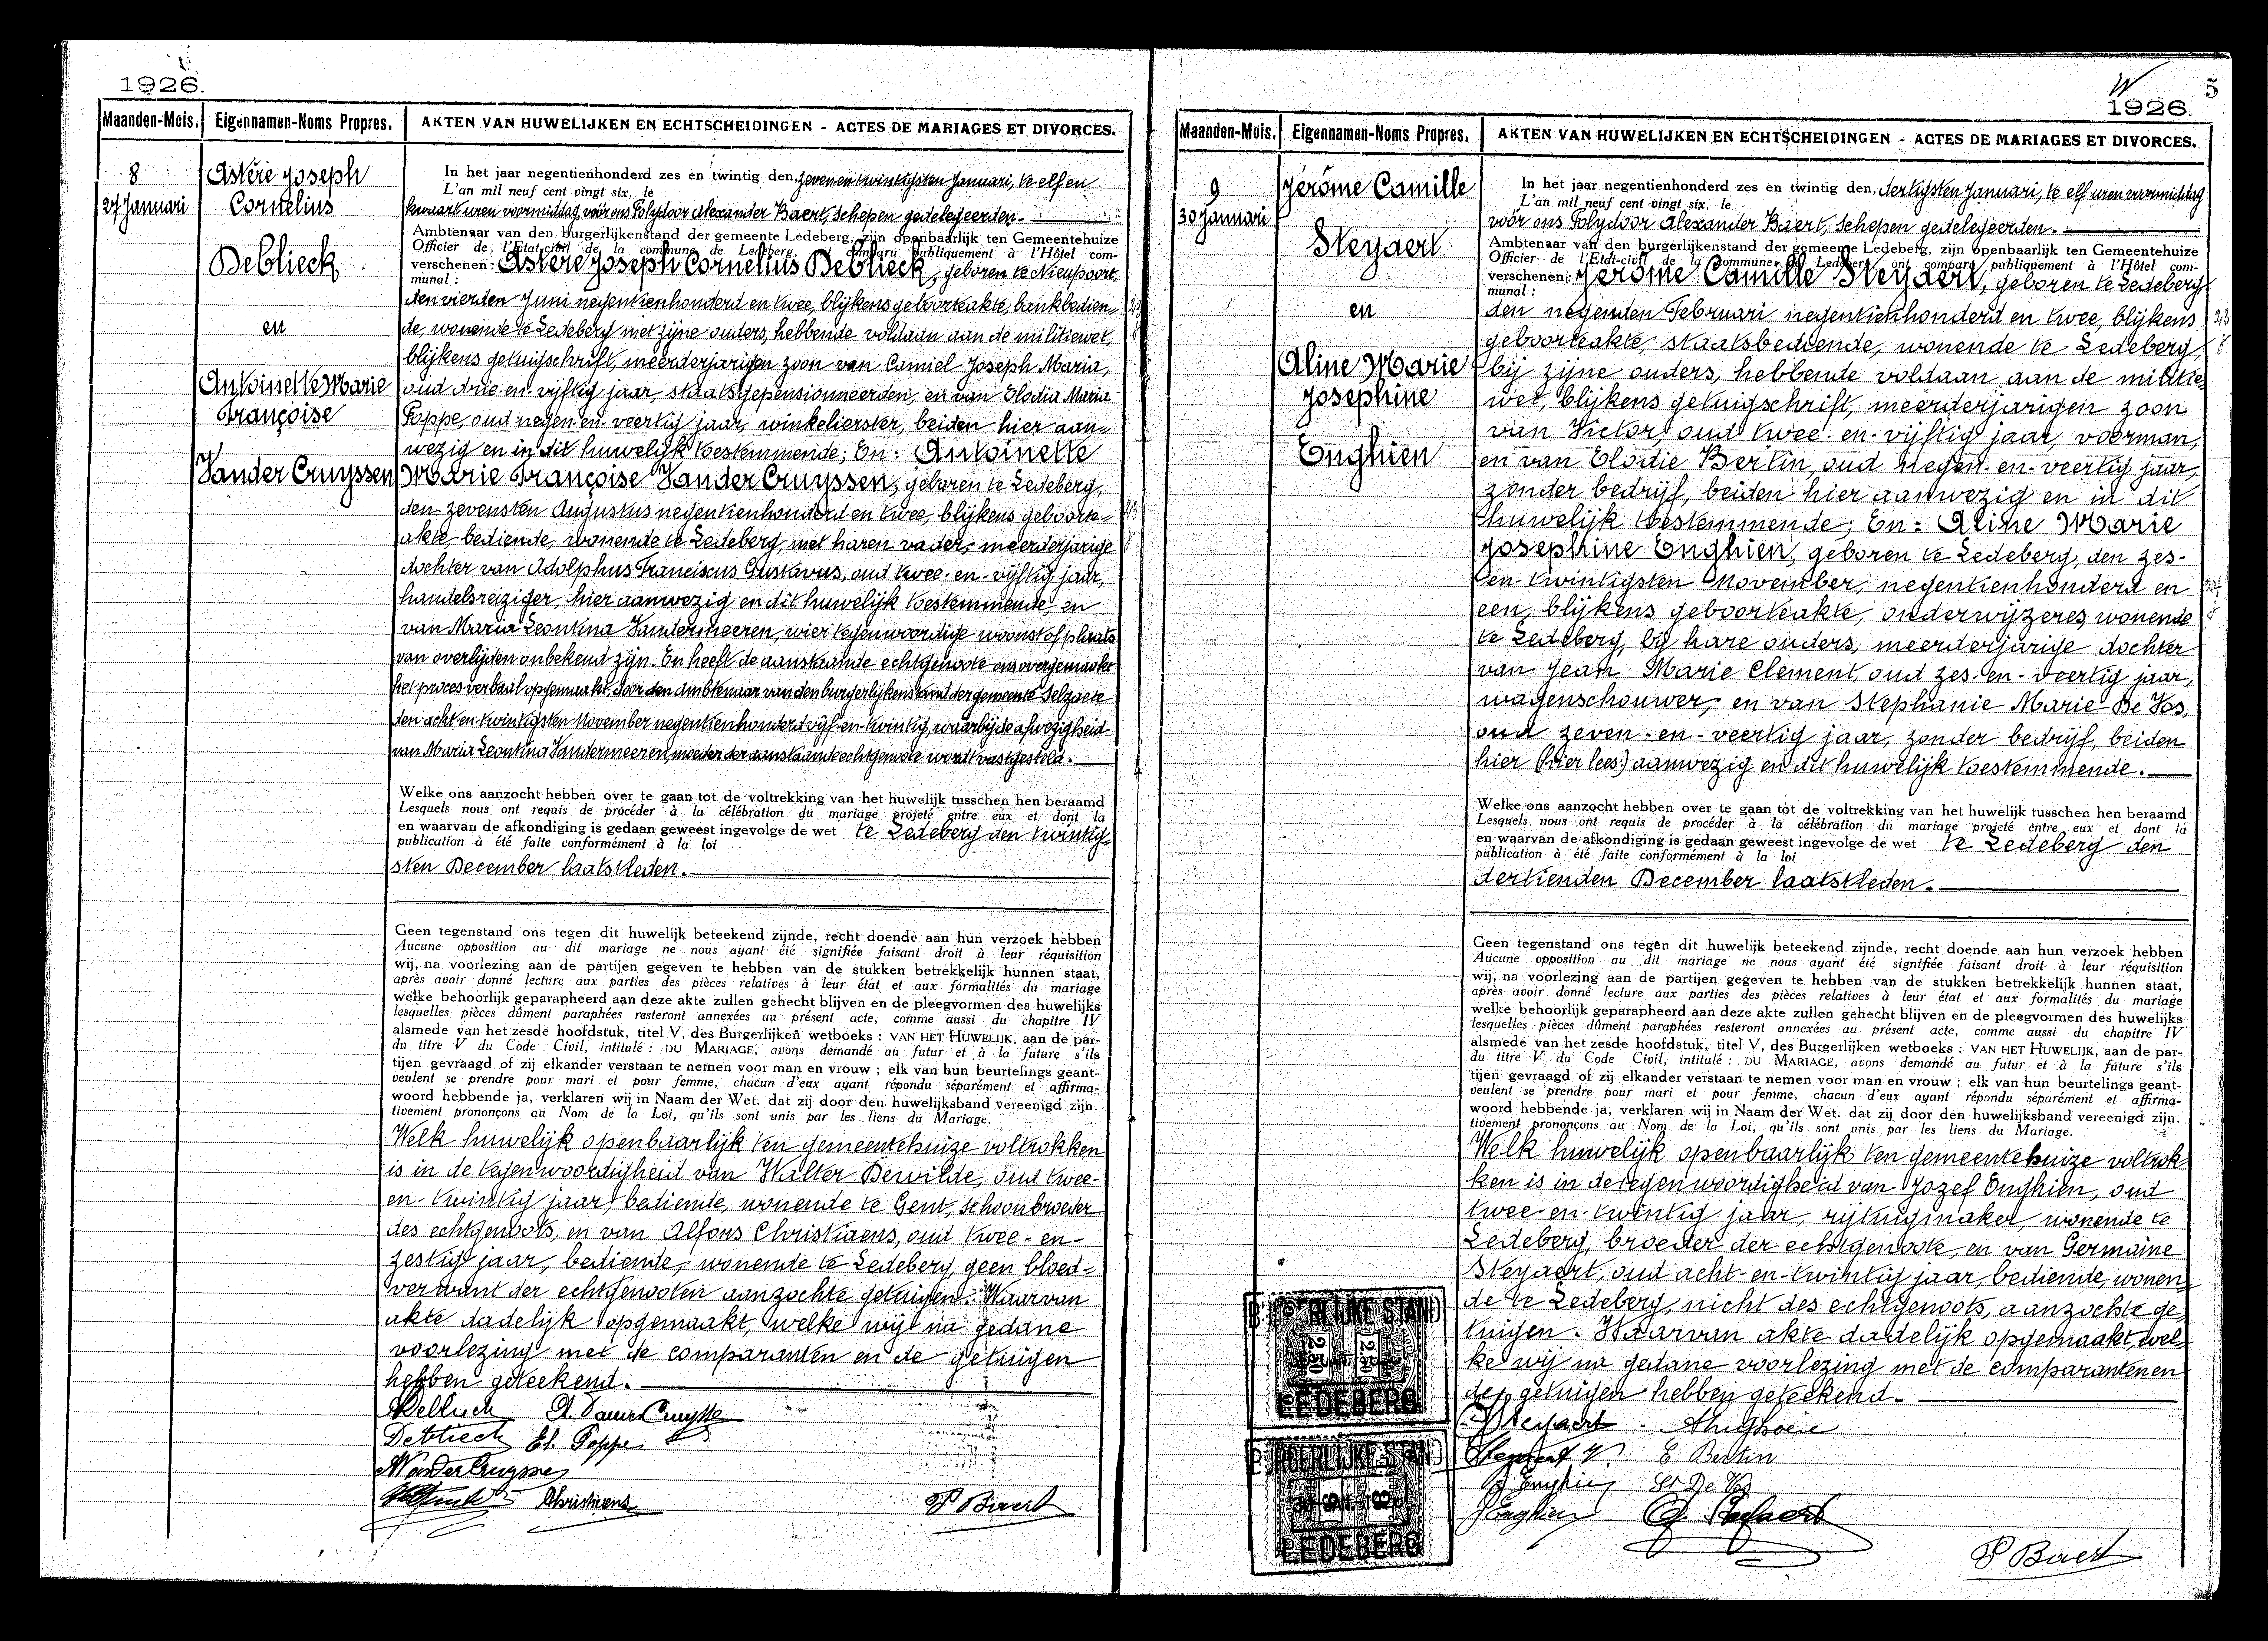 1926.
Maanden-Mois. Eigennamen-Noms Propres. AKTEN VAN HUWELIJKEN EN ECHTSCHEIDINGEN - ACTES DE MARIAGES ET DIVORCES.
8
27 Januari
Astère Joseph
Cornelius
Deblieck
en
Antoinette Marie
Françoise
Vander Cruyssen
In het jaar negentienhonderd zes en twintig den, zeven en twintigsten Januari, te elf en
L'an mil neuf cent vingt six, le
kwaart uren voormiddag, vóór ons Polydoor Alexander Baert, Schepen gedelegeerden.
Ambtenaar van den burgerlijkenstand der gemeente Ledeberg, zijn openbaarlijk ten Gemeentehuize
Officier de l'Etat-civil de la commune de Ledeberg, ont comparu publiquement à l'Hôtel com-
verschenen: Astère Joseph Cornelius Deblieck, geboren te Nieupoort,
munal :
den vierden Juni negentienhonderd en twee, blijkens geboorteakte, bankbedien=
de, wonende te Ledeberg met zijne ouders, hebbende voldaan aan de militiewet,
blijkens getuigschrift, meerderjarigen zoon van Camiel Joseph Maria,
oud drie-en-vijftig jaar, staatsgepensionneerden, en van Elodia Maria
Poppe, oud negen-en-veertig jaar, winkelierster, beiden hier aan=
wezig en in dit huwelijk toestemmende; En: Antoinette
Marie Françoise Vander Cruyssen, geboren te Ledeberg,
den zevensten Augustus negentienhonderd en twee, blijkens geboorte=
akte, bediende, wonende te Ledeberg, met haren vader, meerderjarige
dochter van Adolphus Franciscus Gustavus, oud twee-en-vijftig jaar,
handelsreiziger, hier aanwezig en dit huwelijk toestemmende, en
van Maria Leontina Vandermeeren, wier tegenwoordige woonst of plaats
van overlijden onbekend zijn. En heeft de aanstaande echtgenoote ons overgemaakt
het proces verbaal opgemaakt, door den Ambtenaar van den burgerlijkenstand der gemeente Selzaete
den acht-en-twintigsten November negentienhonderd vijf-en-twintig, waarbij de afwezigheid
van Maria Leontina Vandermeeren, moeder der aanstaande echtgenoote wordt vastgesteld.
Welke ons aanzocht hebben over te gaan tot de voltrekking van het huwelijk tusschen hen beraamd
Lesquels nous ont requis de procéder à la célébration du mariage projeté entre eux et dont la
en waarvan de afkondiging is gedaan geweest ingevolge de wet te Ledeberg den twintig=
publication à été faite conformément à la loi
sten December laatstleden.
Geen tegenstand ons tegen dit huwelijk beteekend zijnde, recht doende aan hun verzoek hebben
Aucune opposition au dit mariage ne nous ayant éié signifiée faisant droit à leur réquisition
wij, na voorlezing aan de partijen gegeven te hebben van de stukken betrekkelijk hunnen staat,
après avoir donné lecture aux parties des pièces relatives à leur état et aux formalités du mariage
welke behoorlijk geparapheerd aan deze akte zullen gehecht blijven en de pleegvormen des huwelijks
lesquelles pièces dûment paraphées resteront annexées au présent acte, comme aussi du chapitre IV
alsmede van het zesde hoofdstuk, titel V, des Burgerlijken wetboeks : VAN HET HUWELIJK, aan de par-
du titre V du Code Civil, intitulé : DU MARIAGE, avons demandé au futur et à la future s'ils
tijen gevraagd of zij elkander verstaan te nemen voor man en vrouw ; elk van hun beurtelings geant-
veulent se prendre pour mari et pour femme, chacun d'eux ayant répondu séparément et affirma-
woord hebbende ja, verklaren wij in Naam der Wet. dat zij door den huwelijksband vereenigd zijn.
tivement prononçons au Nom de la Loi, qu'ils sont unis par les liens du Mariage.
Welk huwelijk openbaarlijk ten gemeentehuize voltrokken
is in de tegenwoordigheid van Walter Dewilde, oud twee-
en-twintig jaar, bediende, wonende te Gent, schoonbroeder
des echtgenoots, en van Alfons Christiaens, oud twee-en-
zestig jaar, bediende, wonende te Ledeberg, geen bloed=
verwant der echtgenooten aanzochte getuigen. Waarvan
akte dadelijk opgemaakt, welke wij na gedane
voorlezing met de comparanten en de getuigen
hebben geteekend.
Deblieck A. Vander Cruysse
Deblieck El. Poppe
Christiaens
P Baert
5
1926.
Maanden-Mois. Eigennamen-Noms Propres. AKTEN VAN HUWELIJKEN EN ECHTSCHEIDINGEN - ACTES DE MARIAGES ET DIVORCES.
9
30 Januari
Jérôme Camille
Steyaert
en
Aline Marie
Josephine
Enghien
In het jaar negentienhonderd zes en twintig den, dertigsten Januari, te elf uren voormiddag
L'an mil neuf cent vingt six, le
vóór ons Polydoor Alexander Baert, Schepen gedelegeerden.
Ambtenaar van den burgerlijkenstand der gemeente Ledeberg, zijn openbaarlijk ten Gemeentehuize
Officier de l'Etat-civil de la commune de Ledeberg ont comparu publiquement à l'Hôtel com-
verschenen: Jérôme Camille Steyaert, geboren te Ledeberg
munal :
den negenden Februari negentienhonderd en twee, blijkens
geboorteakte, staatsbediende, wonende te Ledeberg,
bij zijne ouders, hebbende voldaan aan de militie=
wet, blijkens getuigschrift, meerderjarigen zoon
van Victor, oud twee-en-vijftig jaar, voorman,
en van Elodie Bertin, oud negen-en-veertig jaar,
zonder bedrijf, beiden hier aanwezig en in dit
huwelijk toestemmende; En: Aline Marie
Josephine Enghien, geboren te Ledeberg, den zes-
en-twintigsten November, negentienhonderd en
een, blijkens geboorteakte, onderwijzeres, wonende
te Ledeberg, bij hare ouders, meerderjarige dochter
van Jean Marie Clement, oud zes-en-veertig jaar,
wagenschouwer, en van Stephanie Marie De Vos,
oud zeven-en-veertig jaar, zonder bedrijf, beiden
hier (hier lees:) aanwezig en dit huwelijk toestemmende.
Welke ons aanzocht hebben over te gaan tot de voltrekking van het huwelijk tusschen hen beraamd
Lesquels nous ont requis de procéder à la célébration du mariage projeté entre eux et dont la
en waarvan de afkondiging is gedaan geweest ingevolge de wet te Ledeberg den
publication à été faite conformément à la loi
dertienden December laatstleden.
Geen tegenstand ons tegen dit huwelijk beteekend zijnde, recht doende aan hun verzoek hebben
Aucune opposition au dit mariage ne nous ayant éié signifiée faisant droit à leur réquisition
wij, na voorlezing aan de partijen gegeven te hebben van de stukken betrekkelijk hunnen staat,
après avoir donné lecture aux parties des pièces relatives à leur état et aux formalités du mariage
welke behoorlijk geparapheerd aan deze akte zullen gehecht blijven en de pleegvormen des huwelijks
lesquelles pièces dûment paraphées resteront annexées au présent acte, comme aussi du chapitre IV
alsmede van het zesde hoofdstuk, titel V, des Burgerlijken wetboeks : VAN HET HUWELIJK, aan de par-
du titre V du Code Civil, intitulé : DU MARIAGE, avons demandé au futur et à la future s'ils
tijen gevraagd of zij elkander verstaan te nemen voor man en vrouw ; elk van hun beurtelings geant-
veulent se prendre pour mari et pour femme, chacun d'eux ayant répondu séparément et affirma-
woord hebbende ja, verklaren wij in Naam der Wet. dat zij door den huwelijksband vereenigd zijn.
tivement prononçons au Nom de la Loi, qu'ils sont unis par les liens du Mariage.
Welk huwelijk openbaarlijk ten gemeentehuize voltrok-
ken is in de tegenwoordigheid van Jozef Enghien, oud
twee-en-twintig jaar, rijtuigmaker, wonende te
Ledeberg, broeder der echtgenoote, en van Germaine
Steyaert, oud acht-en-twintig jaar, bediende, wonen=
de te Ledeberg, nicht des echtgenoots, aanzochte ge=
tuigen. Waarvan akte dadelijk opgemaakt, wel=
ke wij na gedane voorlezing met de comparanten en
de getuigen hebben geteekend.
LEDEBERG
LEDEBERG
J Steyaert
Steyaert V. E. Bertin
J Enghien St De Vos
J Enghien G. Steyaert
P Baert